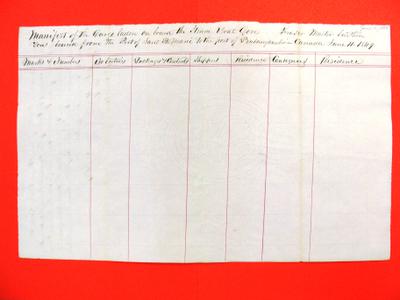 Manifest of the Cargo laden on board the Steam Boat Gore Fraser Master burthen
Tons bound from the Port of Saut St Marie to the port of Penetanguishine Canada June 11. 1849
Marks & Numbers No Entries Packages & Contents Shippers Residence Consignees Residence